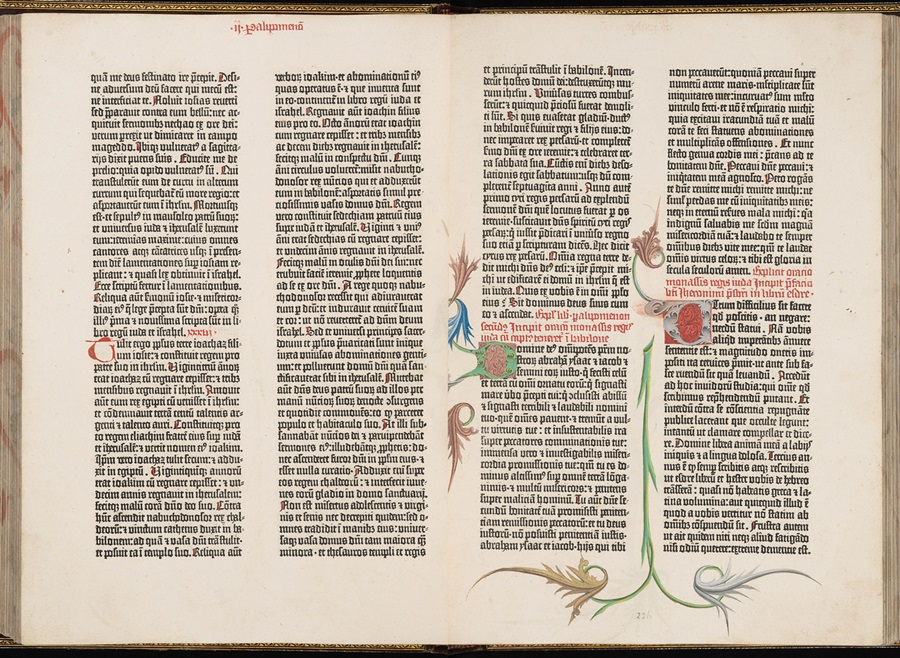 ·ii· Paralipomenõ
quã me deus festinato ire p̃cepit. Desi-
ne adversum deũ facere qui mecũ est:
ne interficiat te. Noluit iosias reverti
sed p̃paravit contra eum bellũ: nec ac-
quievit sermonibz nechao ex ore dei:
verum prexit ut dimicaret in campo
mageddo. Ibiqz vulneratus a sagita-
rijs dixit pueris suis. Educite me de
prelio: quia opido vulneratus sũ. Qui
transtulerũt eum de curru in alterum
currum qui sequebat̃ eũ more regio: et
asportaverũt eum ĩ ihrl̃m. Mortuusqz
est· et sepultus in mausoleo patrũ suoꝝ:
et universus iuda et iherusalẽ luxerunt
eum: ieremias maxime: cuius omnes
cantores atqz cãtatrices usqz ĩ presen-
tem diẽ lamentationes sup̃ iosiam re-
plicant: et quasi lex obtinuit ĩ israhel.
Ecce scriptũ fertur ĩ lamentationibus.
Reliqua aũt smonũ iosie et misericor-
diaꝝ eius q̃ lege p̃cepta sũt dñi: opera qz
illius p̃ma et novissima scripta sũt in li-
bro regũ iuda et israhel. xxxvi·
Tulit ergo pp̃lus terre ioachaz fili-
um iosie: et constituit regem pro
patre suo in ihrl̃m. Viginti triũ annoꝝ
erat ioachaz cũ regnare cepisset: et tribz
mensibus regnavit ĩ ihrl̃m. Amovit
aũt eum rex egipti cũ venisset ĩ ihrl̃m:
et cõdemnavit terrã centũ talentis ar-
genti et talento auri. Constituitqz pro
eo regem eliachim fratrẽ eius sup̃ iudã
et iherusalẽ: et vertit nomen eius ioakim.
Ipm̃ vero ioachaz tulit secum: et addu-
xit in egiptũ. Vigintiquinqz annorũ
erat ioakim cũ regnare cepisset: et un-
decim annis regnavit in iherusalem:
fecitqz malũ corã dño deo suo. Cõtra
hũc ascendit nabuchodonosor rex chal-
deorũ: et vinctum cathenis duxit in ba-
bilonem: ad quã et vasa dñi transtulit:
et posuit ea ĩ templo suo. Reliqua aũt
verboꝝ ioakim· et abominationũ eius
quas operatus ẽ· et que inventa sunt
in eo· continent̃ in libro regũ iuda et
israhel. Regnavit aũt ioachin filius
eius pro eo. Octo annorũ erat ioachin
cum regnare cepisset: et tribz mensibz
ac decem diebz regnavit in iherusalẽ:
fecitqz malũ in conspectu dñi. Cumqz
anni circulus volveret̃: misit nabucho-
donosor rex nũcios qui et adduxerũt
eum in babilonẽ: asportatis simul pre-
ciosissimis vasis domus dñi. Regem
vero constituit sedechiam patruũ eius
super iudã et iherusalẽ. Viginti et unius
ãni erat sedechias cũ regnare cepisset:
et ondecim ãnis regnavit in iherusalẽ.
Fecitqz malũ in oculis dñi dei sui: nec
erubuit faciẽ ieremie p̃phete loquentis
ad se ex ore dñi. A rege quoqz nabu-
chodonosor recessit qui adiuraverat
eum p̃ deũ: et induravit cervicẽ suam
et cor: ut nõ reverteret̃ ad dñm deum
israhel. Sed et universi principes sacer-
dotum et pp̃lus p̃varicati sunt inique
iuxta universas abominationes genti-
um: et polluerunt domũ dñi quã san-
ctificaverat sibi in iherusalẽ. Mittebat
aũt dñs deus patrũ suoꝝ ad illos per
manũ nũcioꝝ suoꝝ de nocte cõsurgens
et quotidie commonẽs: eo qz parceret
populo et habitaculo suo. At illi sub-
sannabãt nũcios dei et parvipendebãt
sermones eius: illudebãtqz p̃phetis: do-
nec ascenderet furor dñi in pp̃lm eius· et
esset nulla curatio. Adduxit enĩ super
eos regem chaldeorũ: et interfecit iuve-
nes eorũ gladio in domo sanctuarij.
Non est misertus adolescentis et virgi-
nis et senis nec decrepiti quidem: sed o-
mnes tradidit ĩ manibz eius: universa-
qz vasa domus dñi tam maiora qz
minora· et thesauros templi et regis
et principũ trãstulit ĩ babilonẽ. Incen-
derũt hostes domũ dei: destruxerũtqz mu-
rum ihrl̃m. Universas turres combus-
serũt: et quicquid p̃ciosũ fuerat demoli-
ti sũt. Si quis evaserat gladiũ· ductus
in babilonẽ servivit regi et filijs eius: do-
nec imperaret rex persarũ· et compleret̃
smo dñi ex ore ieremie: et celebraret ter-
ra sabbata sua. Cũctis enĩ diebz deso-
lationis egit sabbatum: usqz dũ com-
plerent̃ septuaginta anni. Anno autẽ
primo cyri regis persarũ ad explendũ
sermonẽ dñi quẽ locutus fuerat p̃ os
ieremie· suscitavit dñs spiritũ cyri regis
persaꝝ: q̃ iussit p̃dicari ĩ universo regno
suo etiã p̃ scripturam dicẽs. Hec dicit
cyrus rex persarũ. Omĩa regna terre de-
dit michi dñs deus celi: et ip̃e p̃cepit mi-
chi ut edificarẽ ei domũ in ihrl̃m q̃ est
in iudea. Quis ex vobis ẽ in omĩ pp̃lo
eius? Sit dominus deus suus cum
eo et ascendat. Expl̃ lib· paralipomenon
secũdus Incipit oratio manasses regis
iuda cũ captus teneret̃ ĩ babilone
Domine deus omĩpotẽs patrum no-
stroꝝ abrahã ysaac et iacob et
semini eoꝝ iusto· q̃ fecisti celũ
et terrã cũ omĩ ornatu eorũ: q̃ signasti
mare verbo p̃cepti tui: q̃ cõclusisti abissũ
et signasti terribili et laudabili nomini
tuo· quẽ omẽs pavent· et tremũt a vul-
tu virtutis tue: et insustentabilis ira
super peccatores comminationis tue:
immensa vero et investigabilis miseri-
cordia promissionis tue: qm̃ tu es do-
minus altissimus sup̃ omnẽ terrã lõga-
nimis· et multũ misericors: et penitens
super maliciã hominũ. Tu aũt dñe se-
cundũ bonitatẽ tuã promisisti peniten-
tiam remissionis peccatorũ: et tu deus
iustorũ· nõ posuisti penitentiã iustis·
abraham ysaac et iacob· hijs qui tibi
non peccaverũt: quoniã peccavi super
numerũ arene maris· multiplicate sũt
iniquitates mee: incurvatus sum multo
vinculo ferri· et nõ ẽ respiratio michi:
quia excitavi iracundiã tuã et malũ
corã te feci statuens abominationes
et multiplicãs offensiones. Et nunc
flecto genua cordis mei: p̃cans ad te
bonitatem dñe. Peccavi dñe peccavi: et
iniquitatem meã agnosco. Peto rogãs
te dñe remitte michi remitte michi: ne
simul perdas me cũ iniquitatibz meis:
neqz in eternũ reserves mala michi: quia
indignũ salvabis me sc̃dm magnã
misericordiã tuã: et laudabo te semper
omnibus diebz vite mee: qm̃ te laudat
omĩs virtus celoꝝ: et tibi est gloria in
secula seculorũ amen. Explicit oracio
manasses regis iuda Incipit p̃facio
bt̃i Iheronimi presbiteri in librũ esdre·
Utrum difficilius sit facere
qd̃ poscitis· an negare:
necdũ statui. Nã vobis
aliqd̃ imperãtibz abnuere
sententie est: et magnitudo oneris im-
positi ita cervices premit· ut ante sub fa-
sce ruendũ sit quã levandũ. Accedũt
ad hoc invidorũ studia: qui omne qd̃
scribimus rep̃hendendũ putant. Et
interdũ cõtra se cõscientia repugnãte
publice lacerant que occulte legunt:
intantũ ut clamare compellar et dice-
re. Domine libera animã meã a labijs
iniquis· et a lingua dolosa. Tercius an-
nus ẽ qz semp̃ scribitis atqz rescribitis
ut esdre librũ et hester vobis de hebreo
trãsferã: quasi nõ habeatis greca et la-
tina volumina: aut quicquid illud ẽ
quod a vobis vertitur nõ statim ab
omĩbz cõspuendũ sit. Frustra autem
ut ait quidem niti neqz aliud fatigãdo
nisi odiũ querere: extreme demencie est.